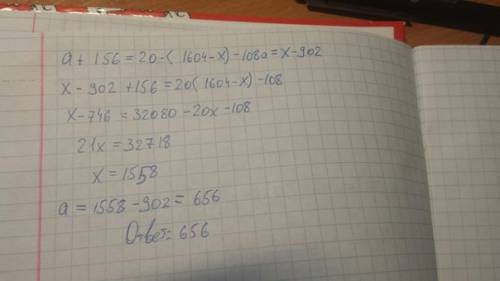 a + 156 = 20 - ( 1604 - x) - 108a = x - 902
x - 902 + 156 = 20( 1604 - x) - 108
x - 746 = 32080 - 20x - 108
21x = 32718
x = 1558
a = 1558 - 902 = 656
Ответ = 656